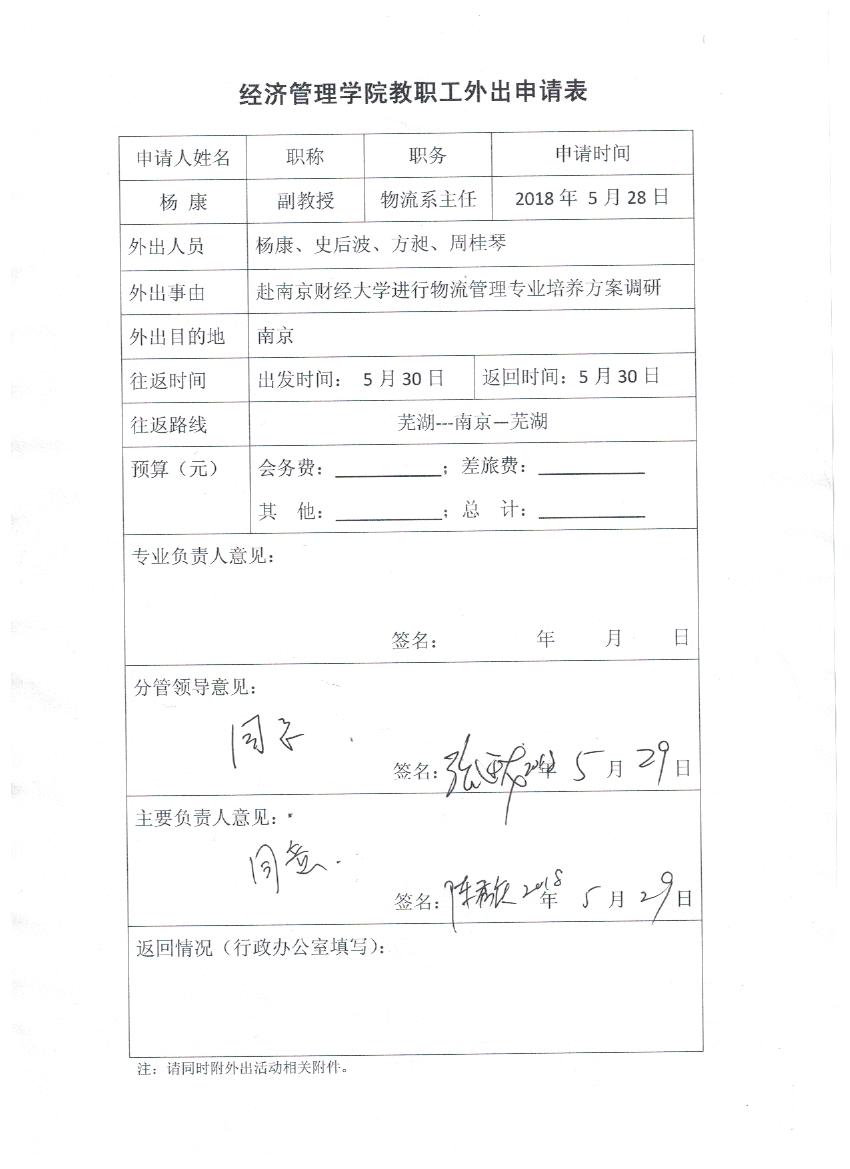 经济管理学院教职工外出申请表
申请人姓名 职称 职务 申请时间
杨 康 副教授 物流系主任 2018 年 5 月 28 日
外出人员 杨康、史后波、方昶、周桂琴
外出事由 赴南京财经大学进行物流管理专业培养方案调研
外出目的地 南京
往返时间 出发时间： 5 月 30 日 返回时间：5 月 30 日
往返路线 芜湖---南京—芜湖
预算（元） 会务费：__________；差旅费：__________
其 他：__________；总 计：__________
专业负责人意见：
签名： 年 月 日
分管领导意见：
同意.
签名： 2018年 5 月 29 日
主要负责人意见：
同意.
签名： 2018年 5 月 29 日
返回情况（行政办公室填写）：
注：请同时附外出活动相关附件。